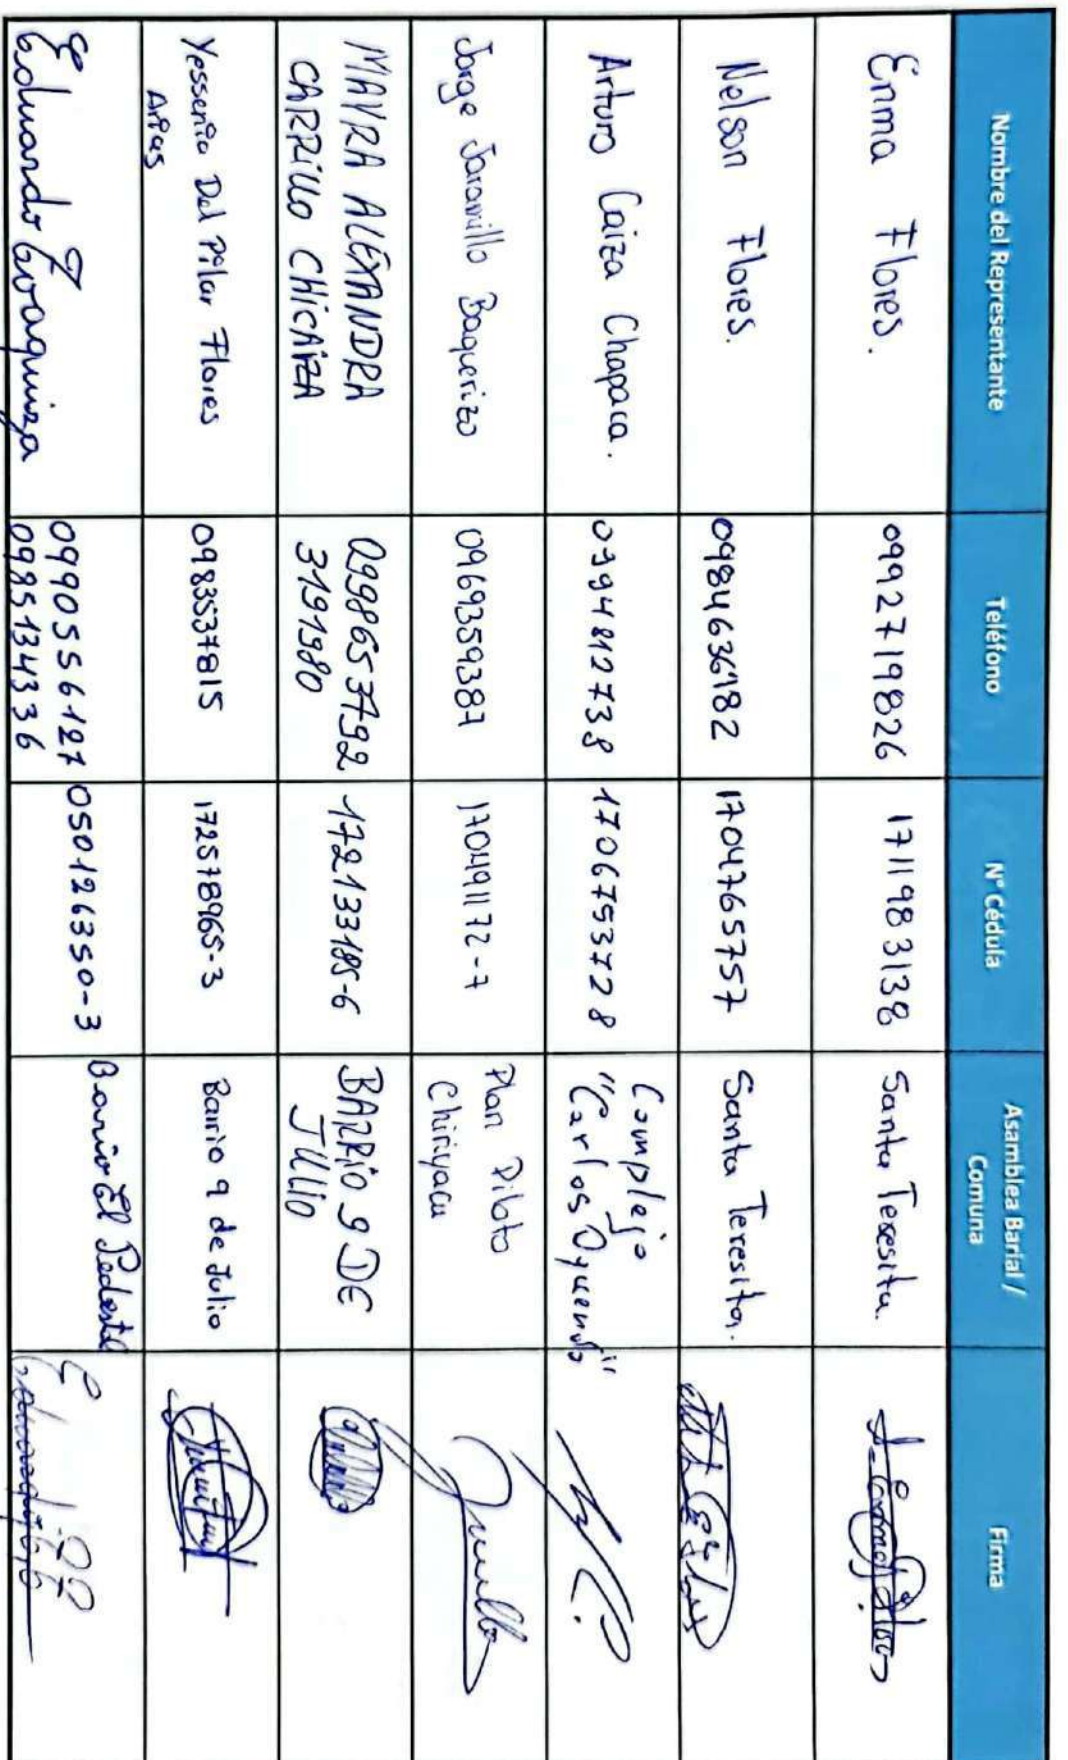 Nombre del Representante
Teléfono
N° Cédula
Asamblea Barial /
Comuna
Firma
Enma Flores.
0992719826
1711983138
Santa Teresita.
Nelson Flores.
0984636182
1704765757
Santa Teresita.
Arturo Caiza Chapaca.
0994812738
1706753728
Complejo
"Carlos Oquendo"
Jorge Jaramillo Baquerizo
0969359387
170491172-7
Plan Piloto
Chiriyacu
MAYRA ALEXANDRA
CARRILLO CHICAIZA
0998653792
3191980
172133185-6
BARRIO 9 DE
JULIO
Yessenia Del Pilar Flores
Arias
0983537815
172578965-3
Barrio 9 de Julio
Eduardo Toaquiza
0990556127
0985134336
050126350-3
Barrio El Pedestal